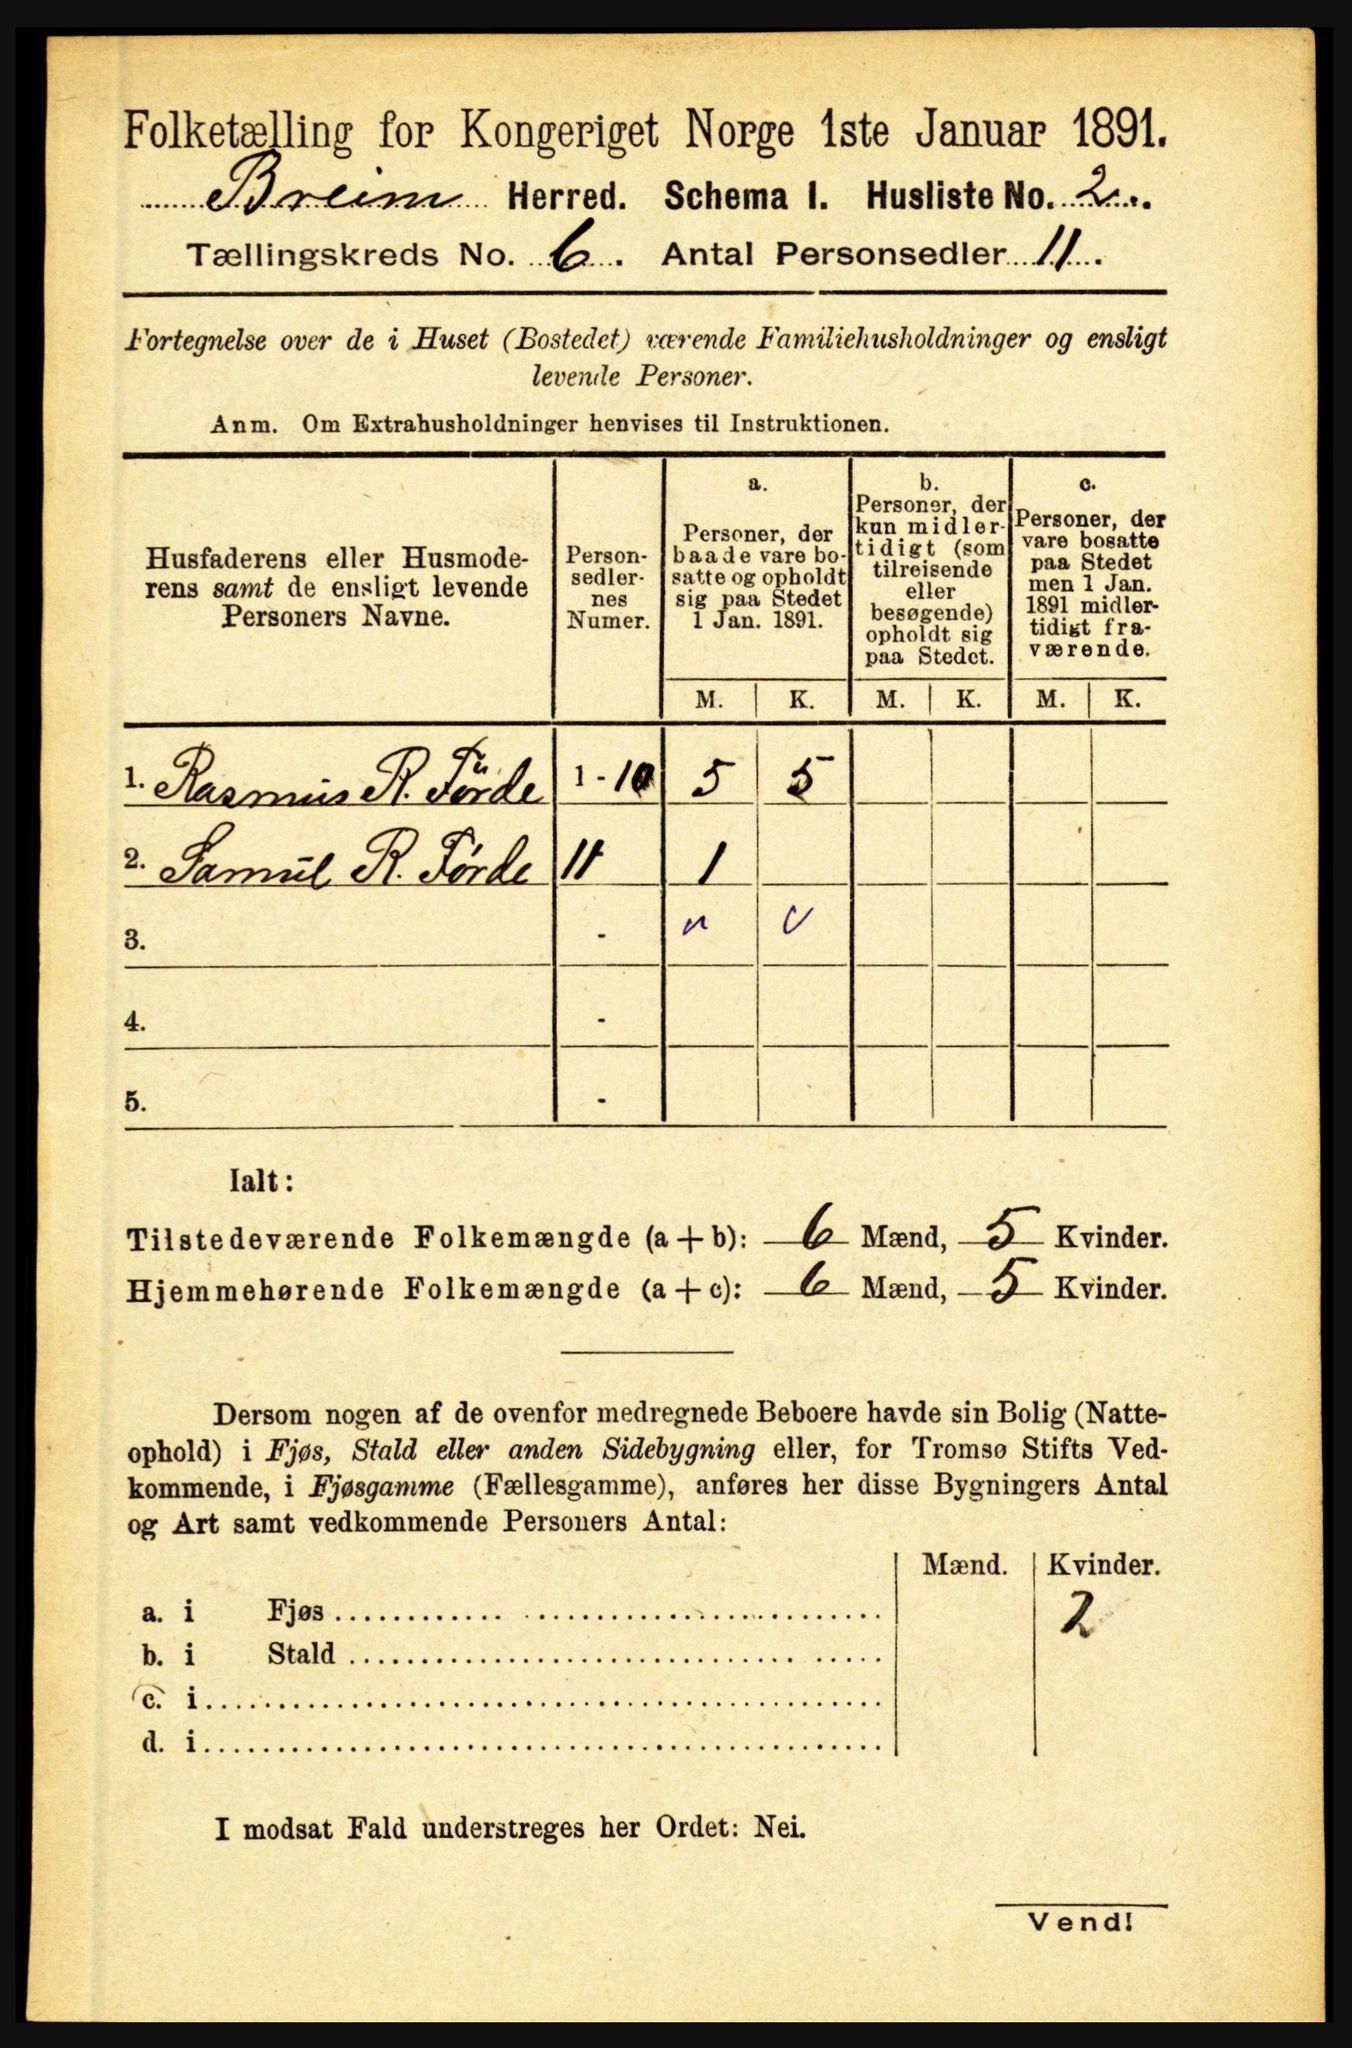 Folketælling for Kongeriget Norge 1ste Januar 1891.
Breim Herred. Schema I. Husliste No. 2.
Tællingskreds No. 6. Antal Personsedler 11.
Fortegnelse over de i Huset (Bostedet) værende Familiehusholdninger og ensligt
levende Personer.
Anm. Om Extrahusholdninger henvises til Instruktionen.
Husfaderens eller Husmode-
rens samt de ensligt levende
Personers Navne.
Person-
sedler-
nes
Numer.
a.
Personer, der
baade vare bo-
satte og opholdt
sig paa Stedet
1 Jan. 1891.
b.
Personer, der
kun midler-
tidigt (som
tilreisende
eller
besøgende)
opholdt sig
paa Stedet.
c.
Personer, der
vare bosatte
paa Stedet
men 1 Jan.
1891 midler-
tidigt fra-
værende.
M. K. M. K. M. K.
1. Rasmus R. Förde 1 - 10 5 5
2. Samul R. Førde 11 1
3. -
4. -
5. -
Ialt:
Tilstedeværende Folkemængde (a + b): 6 Mænd, 5 Kvinder.
Hjemmehørende Folkemængde (a + c): 6 Mænd, 5 Kvinder.
Dersom nogen af de ovenfor medregnede Beboere havde sin Bolig (Natte-
ophold) i Fjøs, Stald eller anden Sidebygning eller, for Tromsø Stifts Ved-
kommende, i Fjøsgamme (Fællesgamme), anføres her disse Bygningers Antal
og Art samt vedkommende Personers Antal:
Mænd. Kvinder.
a. i Fjøs 2
b. i Stald
c. i
d. i
I modsat Fald understreges her Ordet: Nei.
Vend!